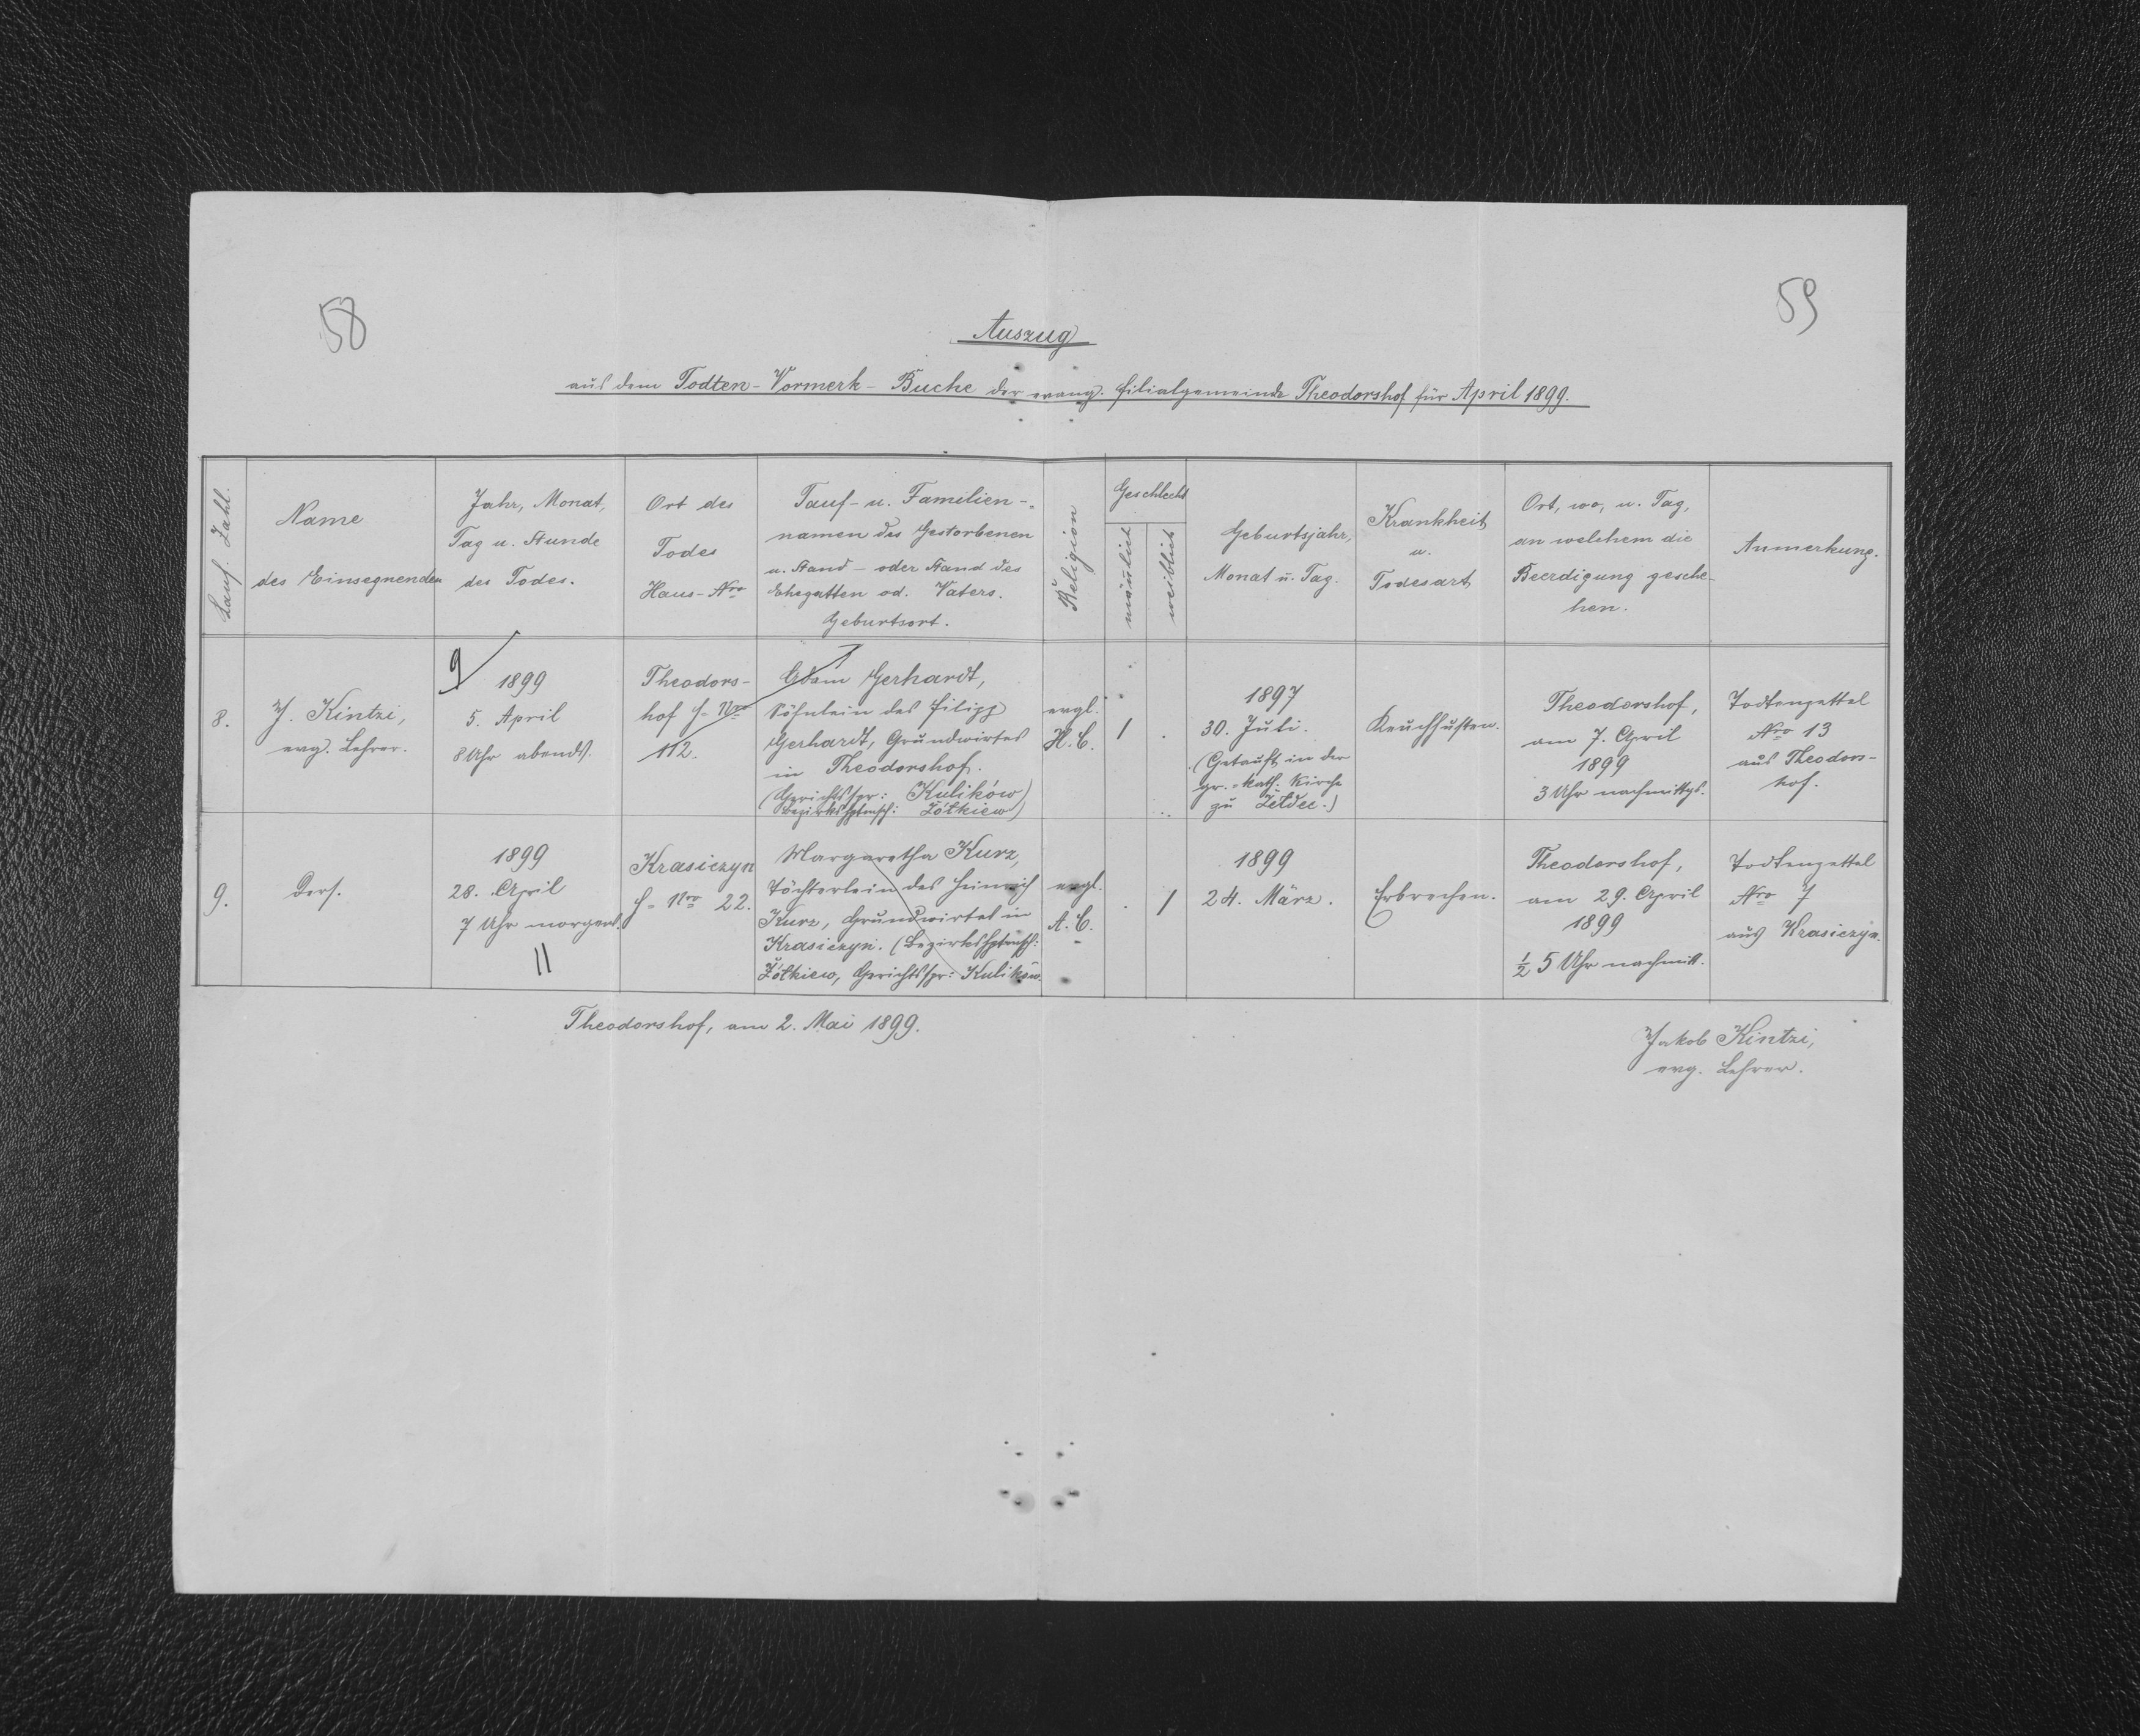 58
59
Auszug
aus dem Todten-Vormerk-Buche der evang. Filialgemeinde Theodorshof für April 1899.
Lauf. Zahl.
Name
des Einsegnenden
Jahr, Monat,
Tag u. Stunde
des Todes.
Ort des
Todes
Haus-Nro
Tauf- u. Familien-
namen des Gestorbenen
u. Stand- oder Stand des
Ehegatten od. Vaters.
Geburtsort.
Religion
Geschlecht
mänlich
weiblich
Geburtsjahr,
Monat u. Tag.
Krankheit
u.
Todesart
Ort, wo, u. Tag,
an welchem die
Beerdigung gesche-
hen.
Anmerkung.
8.
J. Kintzi,
evg. Lehrer.
9
1899
5. April
8 Uhr abends.
Theodors-
hof H-Nro
112.
Adam Gerhardt,
Söhnlein des Filipp
Gerhardt, Grundwirtes
in Theodorshof.
(Gerichtsspr: Kulików)
Bezirkshptmsch: Żółkiew)
evgl.
H.C.
1
.
1897
30. Juli.
(Getauft in der
gr.-kath. Kirche
zu Żełdec.)
Keuchhusten.
Theodorshof,
am 7. April
1899
3 Uhr nachmittgs.
Todtenzettel
Nro 13
aus Theodors-
hof.
9.
Ders.
1899
28. April
7 Uhr morgens.
11
Krasiczyn
H-Nro 22.
Margaretha Kurz,
Töchterlein des Heinrich
Kurz, Grundwirtes in
Krasiczyn. (Bezirkshptmsch:
Żółkiew, Gerichtsspr: Kulików.
evgl.
A.C.
.
1
1899
24. März.
Erbrechen.
Theodorshof,
am 29. April
1899
½ 5 Uhr nachmitt.
Todtenzettel
Nro 7
aus Krasiczyn.
Theodorshof, am 2. Mai 1899.
Jakob Kintzi,
evg. Lehrer.